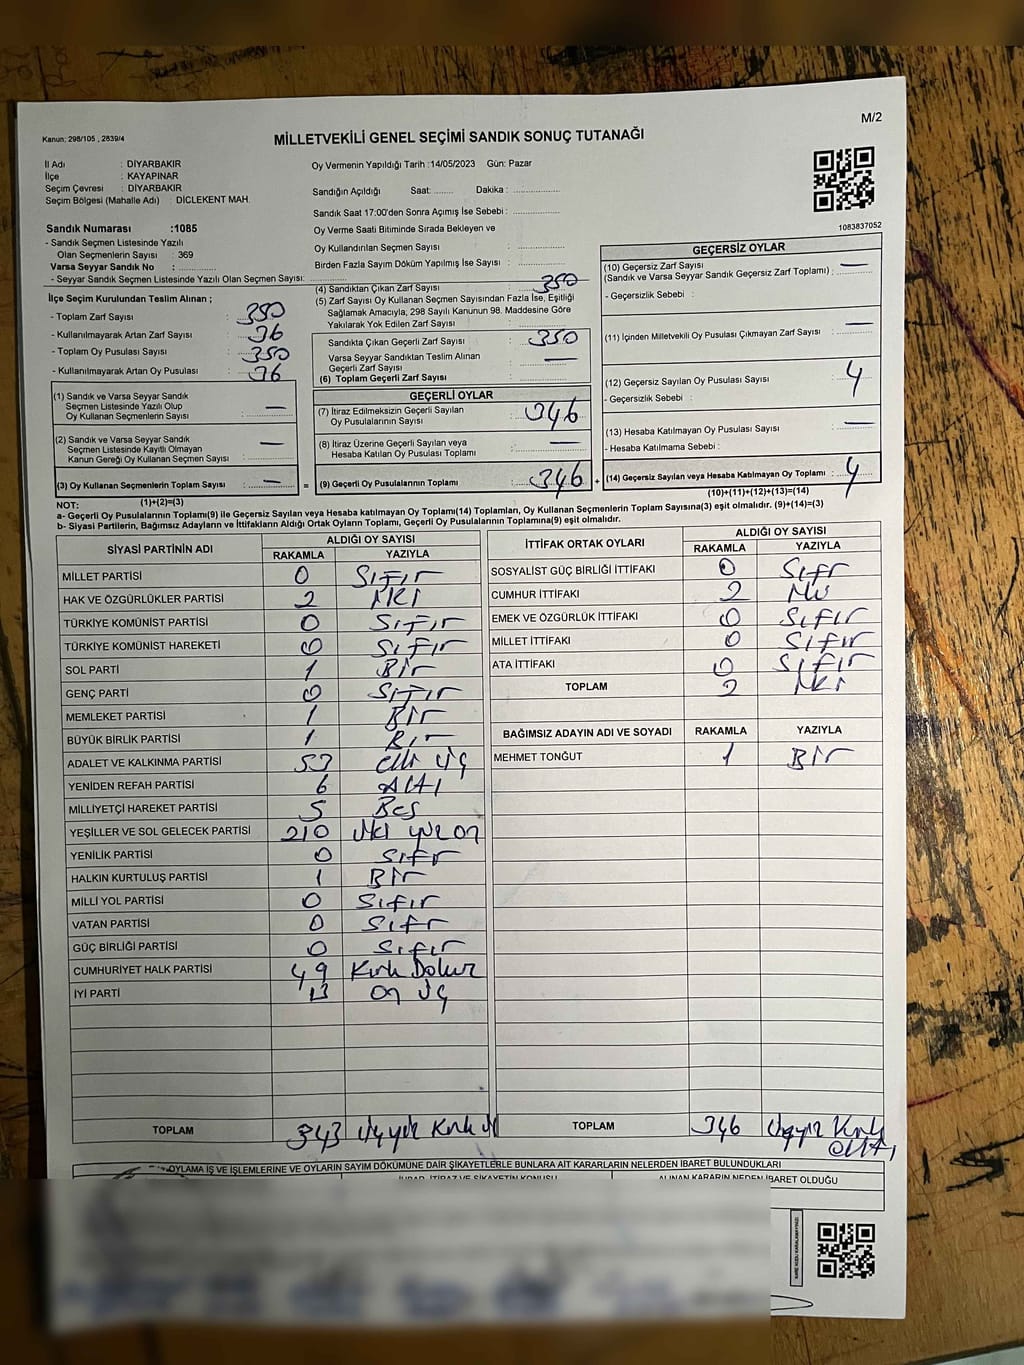 M/2
Kanun: 298/105 , 2839/4
MİLLETVEKİLİ GENEL SEÇİMİ SANDIK SONUÇ TUTANAĞI
İl Adı : DİYARBAKIR
İlçe : KAYAPINAR
Seçim Çevresi : DİYARBAKIR
Seçim Bölgesi (Mahalle Adı) : DİCLEKENT MAH.
Sandık Numarası :1085
- Sandık Seçmen Listesinde Yazılı
Olan Seçmenlerin Sayısı : 369
Varsa Seyyar Sandık No : ..............
- Seyyar Sandık Seçmen Listesinde Yazılı Olan Seçmen Sayısı: ..............
Oy Vermenin Yapıldığı Tarih :14/05/2023 Gün: Pazar
Sandığın Açıldığı Saat: ........ Dakika : ..............
Sandık Saat 17:00'den Sonra Açımış İse Sebebi : ..............
Oy Verme Saati Bitiminde Sırada Bekleyen ve
Oy Kullandırılan Seçmen Sayısı : ..............
Birden Fazla Sayım Döküm Yapılmış İse Sayısı : ..............
1083837052
İlçe Seçim Kurulundan Teslim Alınan ;
- Toplam Zarf Sayısı : 380
- Kullanılmayarak Artan Zarf Sayısı : 36
- Toplam Oy Pusulası Sayısı : 350
- Kullanılmayarak Artan Oy Pusulası : 36
(1) Sandık ve Varsa Seyyar Sandık
Seçmen Listesinde Yazılı Olup
Oy Kullanan Seçmenlerin Sayısı : —
(2) Sandık ve Varsa Seyyar Sandık
Seçmen Listesinde Kayıtlı Olmayan
Kanun Gereği Oy Kullanan Seçmen Sayısı : —
(3) Oy Kullanan Seçmenlerin Toplam Sayısı : —
(1)+(2)=(3)
(4) Sandıktan Çıkan Zarf Sayısı : 350
(5) Zarf Sayısı Oy Kullanan Seçmen Sayısından Fazla İse, Eşitliği
Sağlamak Amacıyla, 298 Sayılı Kanunun 98. Maddesine Göre
Yakılarak Yok Edilen Zarf Sayısı :
Sandıkta Çıkan Geçerli Zarf Sayısı : 350
Varsa Seyyar Sandıktan Teslim Alınan
Geçerli Zarf Sayısı : —
(6) Toplam Geçerli Zarf Sayısı : ..............
GEÇERLİ OYLAR
(7) İtiraz Edilmeksizin Geçerli Sayılan
Oy Pusulalarının Sayısı : 346
(8) İtiraz Üzerine Geçerli Sayılan veya
Hesaba Katılan Oy Pusulası Toplamı : —
= (9) Geçerli Oy Pusulalarının Toplamı : 346 +
GEÇERSİZ OYLAR
(10) Geçersiz Zarf Sayısı
(Sandık ve Varsa Seyyar Sandık Geçersiz Zarf Toplamı) : —
- Geçersizlik Sebebi :
(11) İçinden Milletvekili Oy Pusulası Çıkmayan Zarf Sayısı : —
(12) Geçersiz Sayılan Oy Pusulası Sayısı : 4
- Geçersizlik Sebebi :
(13) Hesaba Katılmayan Oy Pusulası Sayısı : —
- Hesaba Katılmama Sebebi :
(14) Geçersiz Sayılan veya Hesaba Katılmayan Oy Toplamı : 4
(10)+(11)+(12)+(13)=(14)
NOT:
a- Geçerli Oy Pusulalarının Toplamı(9) ile Geçersiz Sayılan veya Hesaba Katılmayan Oy Toplamı(14) Toplamları, Oy Kullanan Seçmenlerin Toplam Sayısına(3) eşit olmalıdır. (9)+(14)=(3)
b- Siyasi Partilerin, Bağımsız Adayların ve İttifakların Aldığı Ortak Oyların Toplamı, Geçerli Oy Pusulalarının Toplamına(9) eşit olmalıdır.
SİYASİ PARTİNİN ADI ALDIĞI OY SAYISI
RAKAMLA YAZIYLA
MİLLET PARTİSİ 0 Sıfır
HAK VE ÖZGÜRLÜKLER PARTİSİ 2 İki
TÜRKİYE KOMÜNİST PARTİSİ 0 Sıfır
TÜRKİYE KOMÜNİST HAREKETİ 0 Sıfır
SOL PARTİ 1 Bir
GENÇ PARTİ 0 Sıfır
MEMLEKET PARTİSİ 1 Bir
BÜYÜK BİRLİK PARTİSİ 1 Bir
ADALET VE KALKINMA PARTİSİ 53 elli üç
YENİDEN REFAH PARTİSİ 6 Altı
MİLLİYETÇİ HAREKET PARTİSİ 5 Beş
YEŞİLLER VE SOL GELECEK PARTİSİ 210 iki yüz on
YENİLİK PARTİSİ 0 Sıfır
HALKIN KURTULUŞ PARTİSİ 1 Bir
MİLLİ YOL PARTİSİ 0 Sıfır
VATAN PARTİSİ 0 Sıfr
GÜÇ BİRLİĞİ PARTİSİ 0 Sıfır
CUMHURİYET HALK PARTİSİ 49 Kırk Dokuz
İYİ PARTİ 13 on üç
TOPLAM 343 üçyüz Kırk
İTTİFAK ORTAK OYLARI ALDIĞI OY SAYISI
RAKAMLA YAZIYLA
SOSYALİST GÜÇ BİRLİĞİ İTTİFAKI 0 Sıfr
CUMHUR İTTİFAKI 2 İki
EMEK VE ÖZGÜRLÜK İTTİFAKI 0 Sıfır
MİLLET İTTİFAKI 0 Sıfır
ATA İTTİFAKI 0 Sıfır
TOPLAM 2 İki
BAĞIMSIZ ADAYIN ADI VE SOYADI RAKAMLA YAZIYLA
MEHMET TONĞUT 1 Bir
TOPLAM 346 üçyüz Kırk
altı
OYLAMA İŞ VE İŞLEMLERİNE VE OYLARIN SAYIM DÖKÜMÜNE DAİR ŞİKAYETLERLE BUNLARA AİT KARARLARIN NELERDEN İBARET BULUNDUKLARI
ALINAN KARARIN NEDEN İBARET OLDUĞU